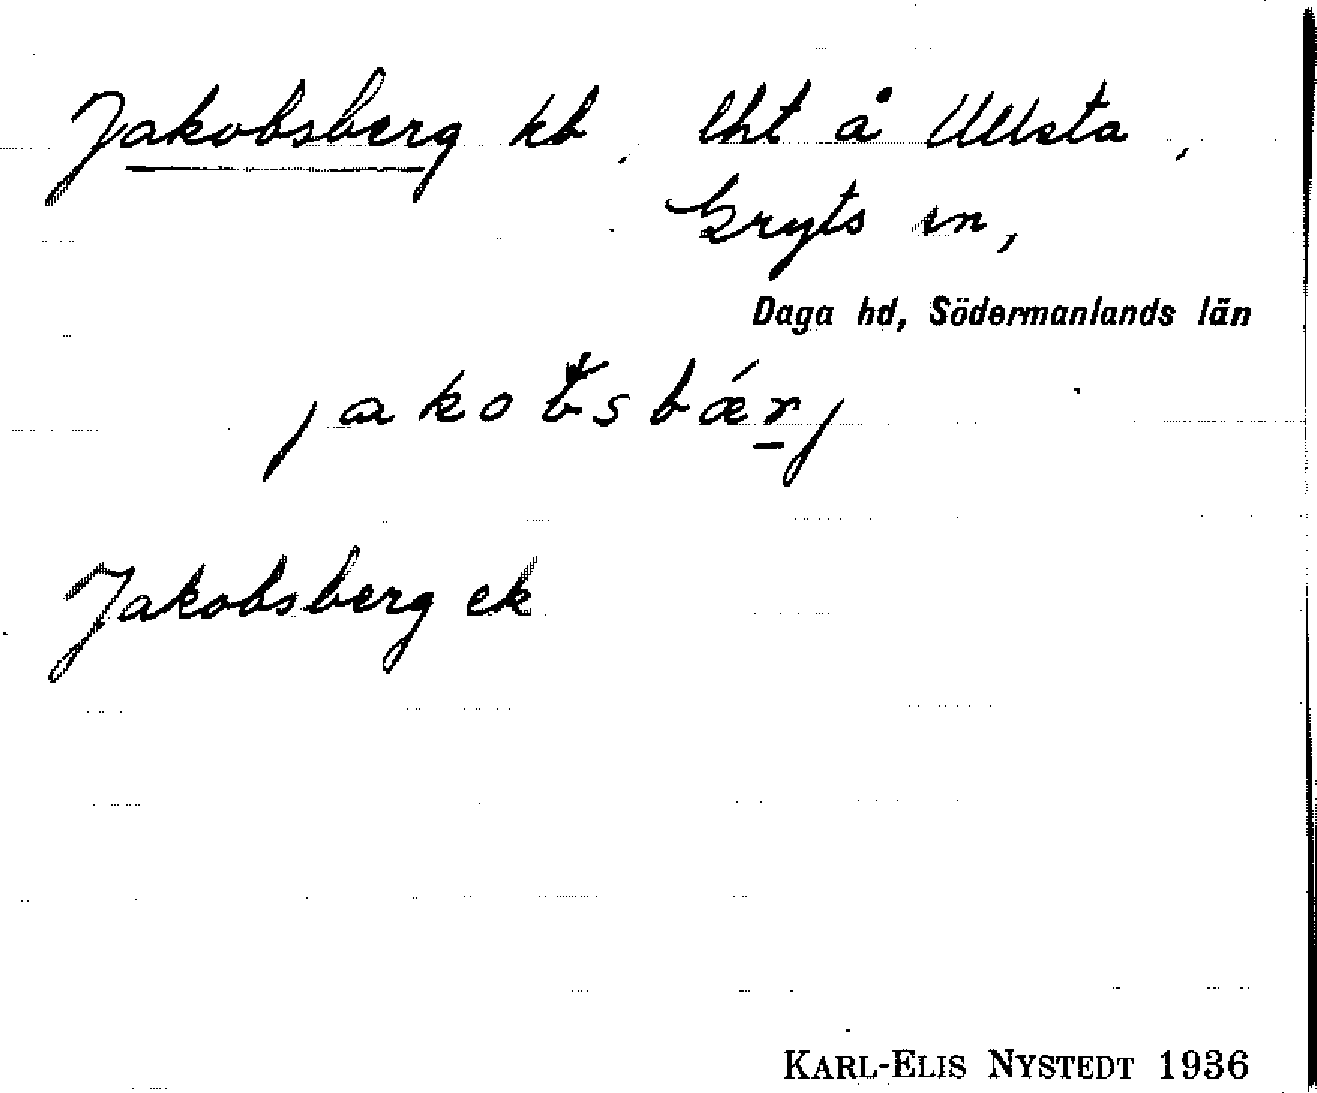 Jakobsberg kb, lht å Ullsta,
Gryts sn,
Daga hd, Södermanlands län
jakobsbǽr̲j
Jakobsberg ek
KARL-ELIS NYSTEDT 1936